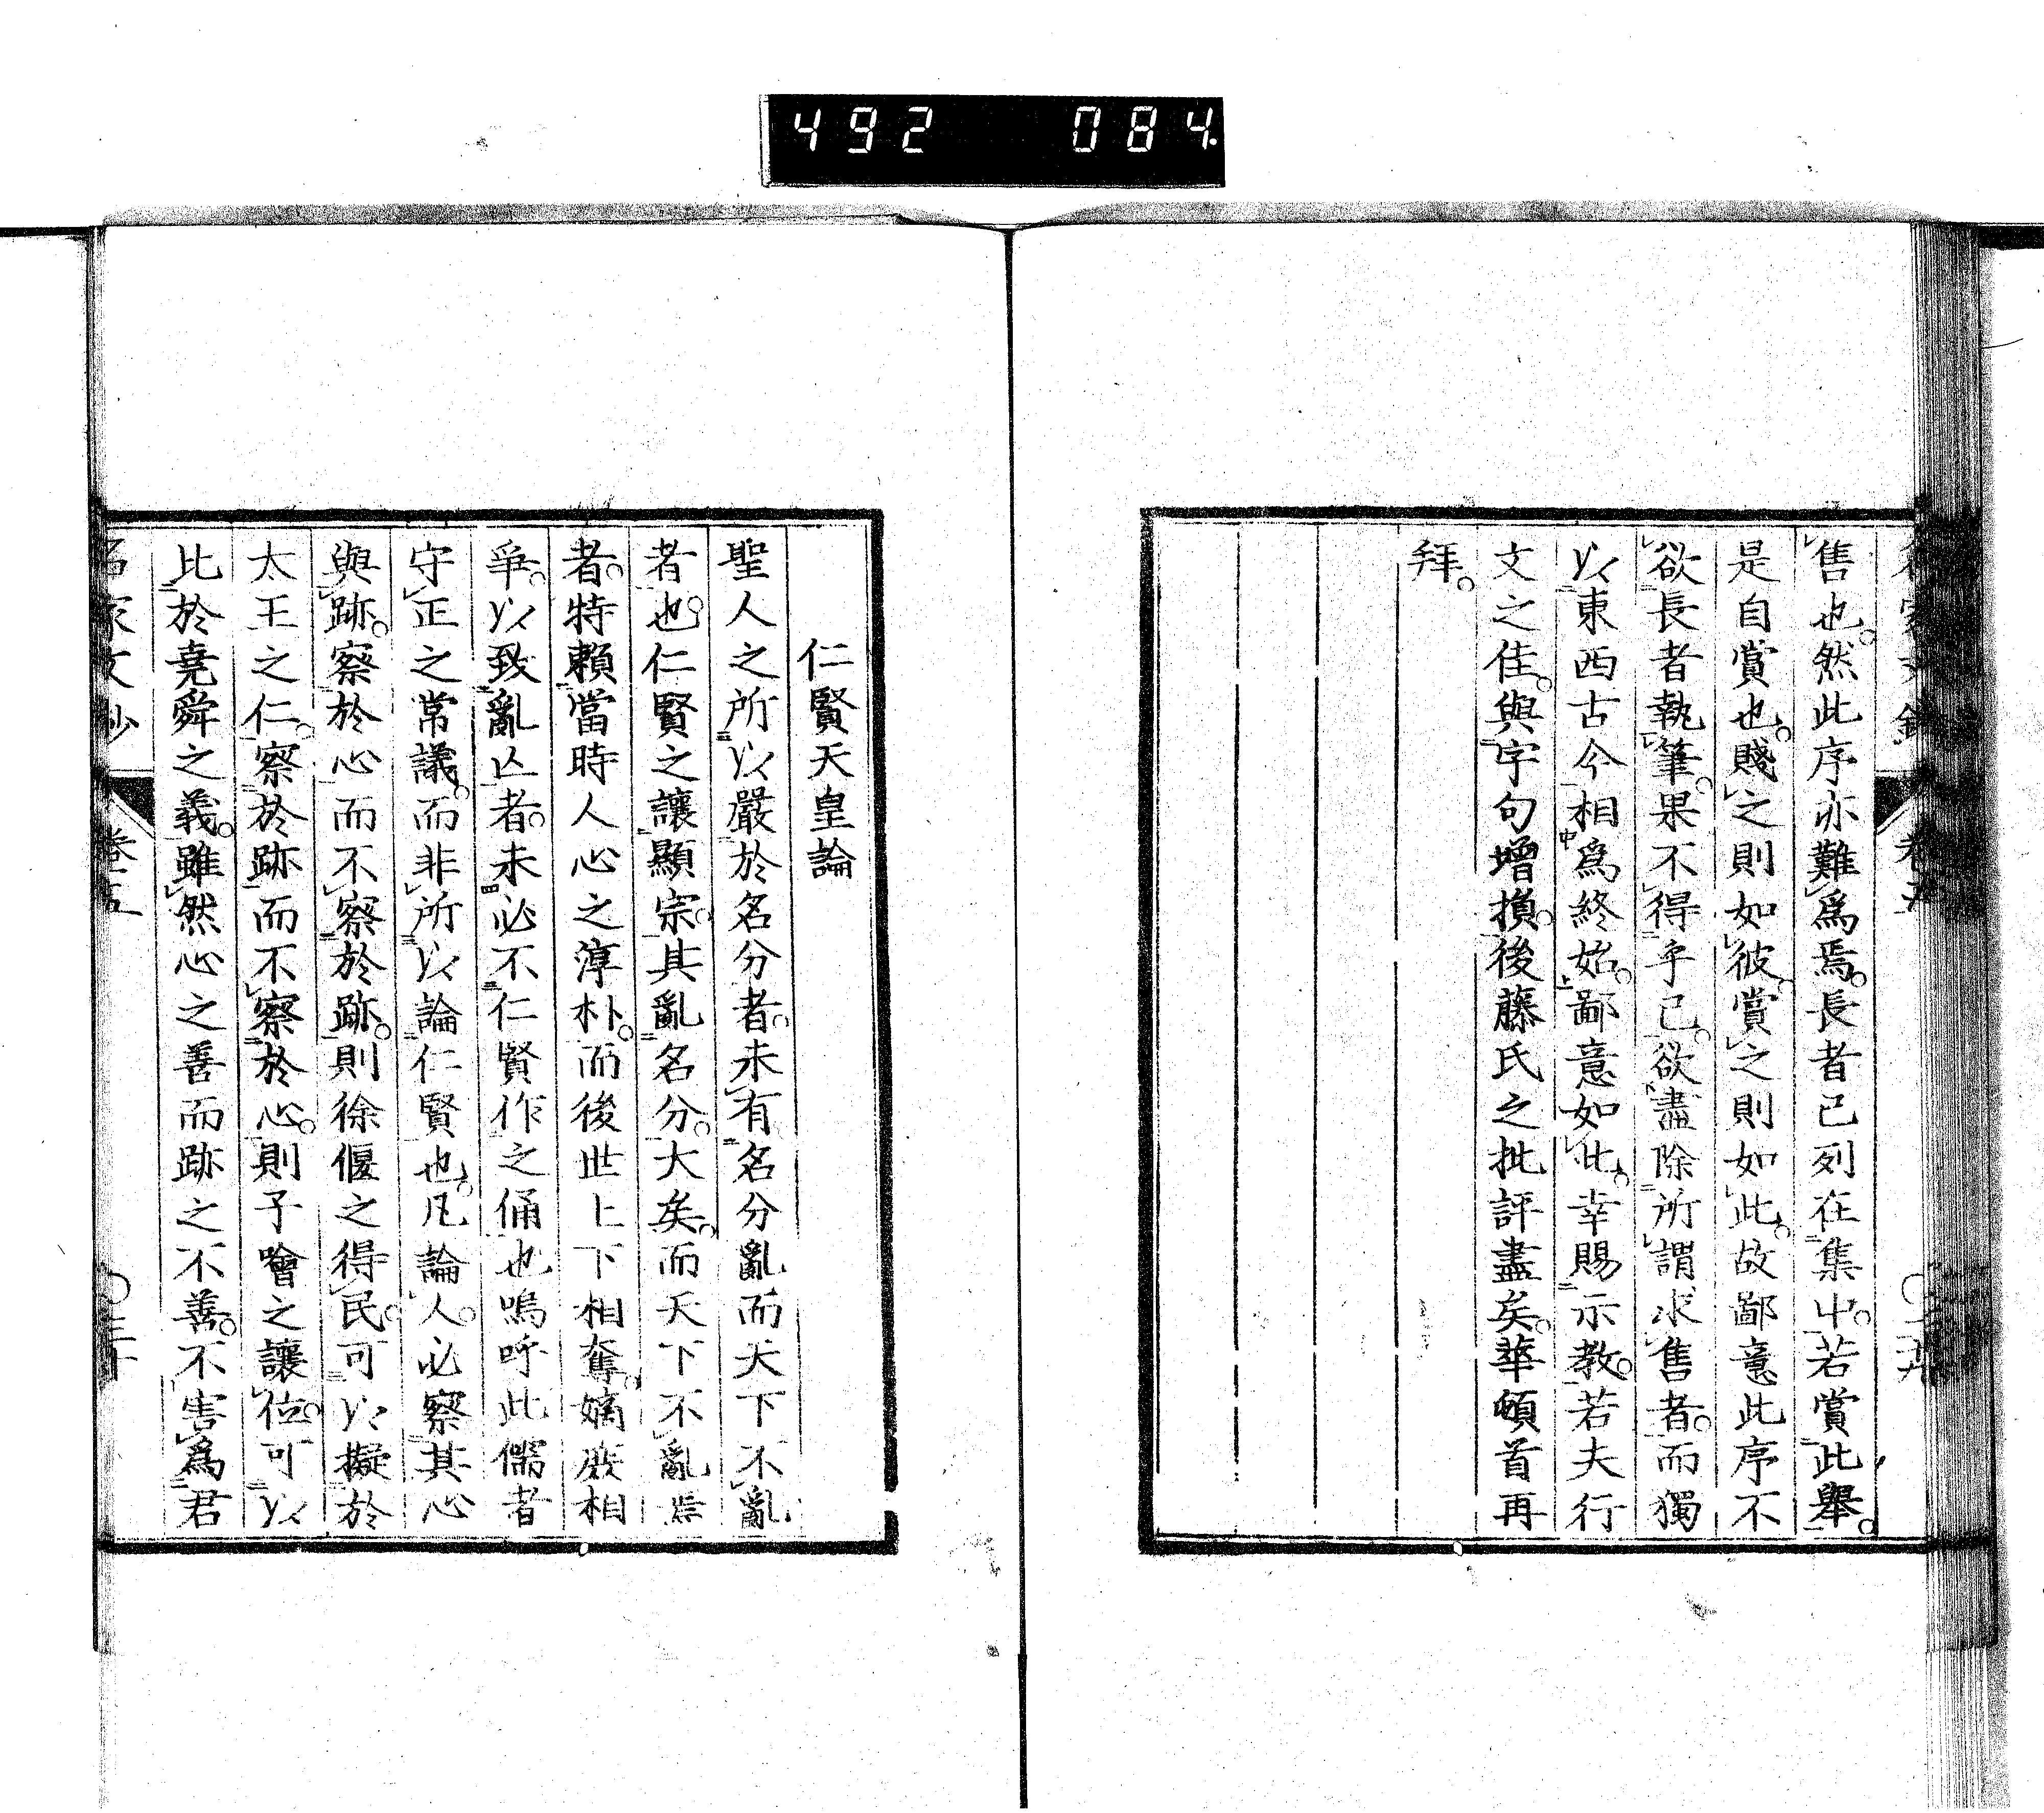 492 084
售也。然此序亦難爲焉。長者已列在集中。若賞此舉。
是自賞也。賤之則如彼。賞之則如此。故鄙意此序不
欲長者執筆。果不得乎已。欲盡除所謂求售者。而獨
以東西古今相爲終始。鄙意如此。幸賜示教。若夫行
文之佳。與字句增損。後藤氏之批評盡矣。華頓首再
拜。
仁賢天皇論
聖人之所以嚴於名分者。未有名分亂而天下不亂
者也。仁賢之讓顯宗。其亂名分。大矣。而天下不亂焉
者。特賴當時人心之淳朴。而後世上下相奪。嫡庶相
爭。以致亂亾者。未必不仁賢作之俑也。嗚呼此儒者
守正之常議。而非所以論仁賢也。凡論人。必察其心
與跡。察於心而不察於跡。則徐偃之得民。可以擬於
太王之仁。察於跡而不察於心。則子噲之讓位。可以
比於堯舜之義。雖然心之善而跡之不善。不害爲君
名家文抄 卷五 〇三十